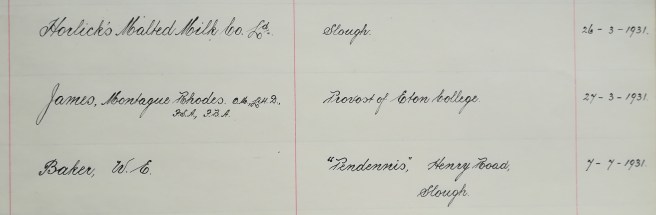 Horlick's Malted Milk Co. Ld. Slough. 26-3-1931.
James, Montague Rhodes. O.M., Litt.D., Provost of Eton College. 27-3-1931.
F.S.A., F.B.A.
Baker, W. E. "Pendennis", Henry Road, 7-7-1931.
Slough.